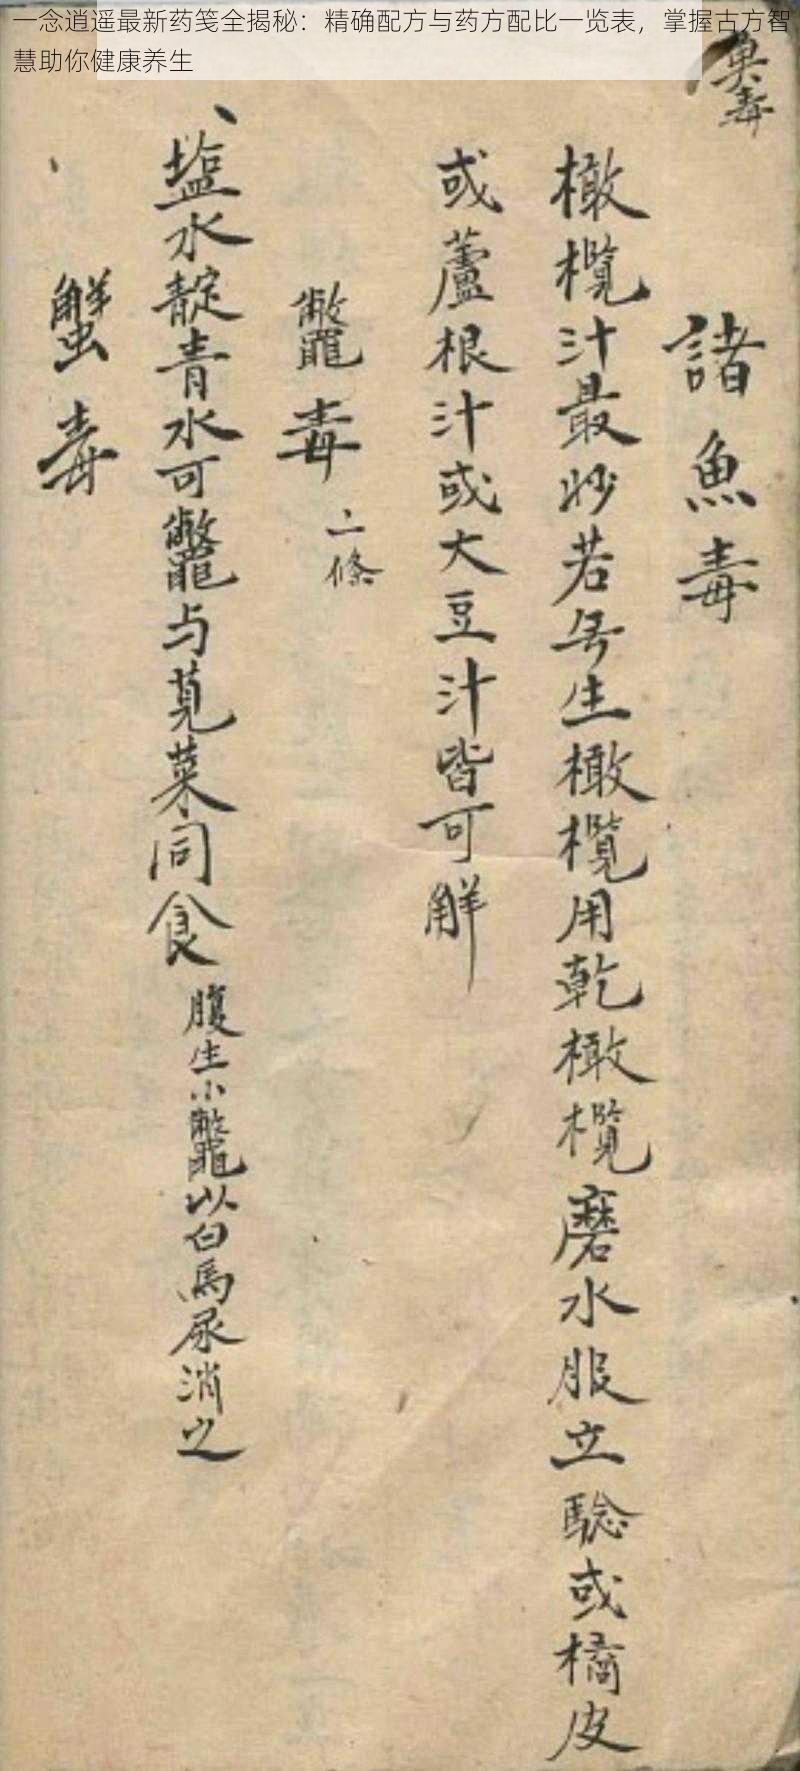 一念逍遥最新药笺全揭秘：精确配方与药方配比一览表，掌握古方智
慧助你健康养生
魚毒
諸魚毒
橄欖汁最妙若無生橄欖用乾橄欖磨水服立驗或橘皮
或蘆根汁或大豆汁皆可解
鼈毒 二條
塩水靛青水可鼈与莧菜同食 腹生小鼈以白馬尿消之
蟹毒